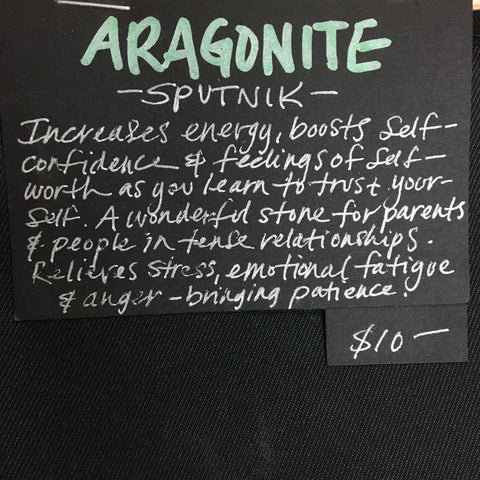 ARAGONITE
- SPUTNIK -
Increases energy, boosts Self-
confidence & feelings of Self-
worth as you learn to trust your-
self. A wonderful stone for parents
& people in tense relationships.
Relieves stress, emotional fatigue
& anger - bringing patience.
$10 -